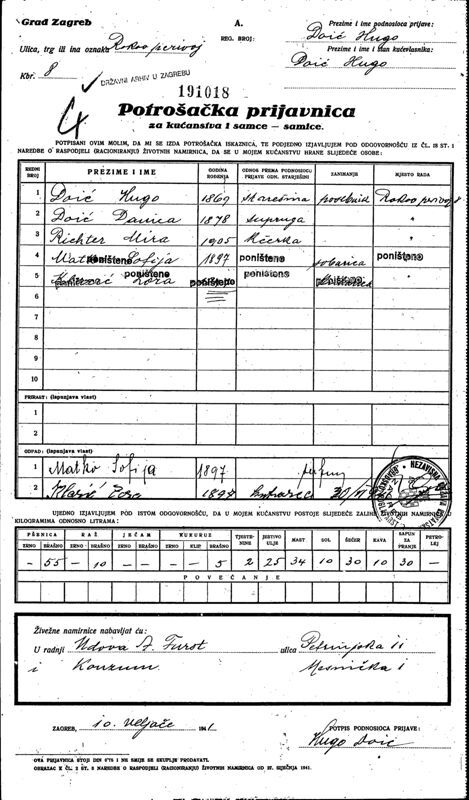 Grad Zagreb
A.
REG. BROJ:
Prezime i ime podnosioca prijave:
Doić Hugo
Ulica, trg ili ina oznaka Rokov perivoj
Prezime i ime i stan kućevlasnika:
Doić Hugo
Kbr. 8
DRŽAVNI ARHIV U ZAGREBU
191018
4
Potrošačka prijavnica
za kućanstva i samce — samice.
POTPISANI OVIM MOLIM, DA MI SE IZDA POTROŠAČKA ISKAZNICA, TE PODJEDNO IZJAVLJUJEM POD ODGOVORNOŠĆU IZ ČL. 18 ST. 1
NAREDBE O RASPODJELI (RACIONIRANJU) ŽIVOTNIH NAMIRNICA, DA SE U MOJEM KUĆANSTVU HRANE SLIJEDEĆE OSOBE:
REDNI BROJ PREZIME I IME GODINA ROĐENJA ODNOS PREMA PODNOSIOCU PRIJAVE ODN. STARJEŠINI ZANIMANJE MJESTO RADA
1 Doić Hugo 1869 starešina Rokov perivoj 8
2 Doić Danica 1878 supruga "
3 Richter Mira 1905 kćerka "
4 Matko Sofija poništeno 1897 poništeno sobarica poništeno
5 Zora poništeno poništeno poništeno poništeno
6
7
8
9
10
PRIRAST: (ispunjava vlast)
1
2
OTPAD: (ispunjava vlast)
1 Matko Sofija 1897
2 Klarić Zora
NEZAVISNA DRŽAVA HRVATSKA
UJEDNO IZJAVLJUJEM POD ISTOM ODGOVORNOŠĆU, DA U MOJEM KUĆANSTVU POSTOJE SLIJEDEĆE ZALIHE ŽIVOTNIH NAMIRNICA U
KILOGRAMIMA ODNOSNO LITRAMA:
PŠENICA RAŽ JEČAM KUKURUZ TJESTENINE JESTIVO ULJE MAST SOL ŠEĆER KAVA SAPUN ZA PRANJE PETROLEJ
ZRNO BRAŠNO ZRNO BRAŠNO ZRNO BRAŠNO ZRNO KLIP BRAŠNO
— 55 — 10 — — — — 5 2 25 34 10 30 10 30 —
POVEĆANJE
Živežne namirnice nabavljat ću:
U radnji Udova A. Furst ulica Petrinjska 11
i Konzum Mesnička 1
ZAGREB, 10. veljače 1941
POTPIS PODNOSIOCA PRIJAVE:
Hugo Doić
OVA PRIJAVNICA STOJI DIN 0'75 I NE SMIJE SE SKUPLJE PRODAVATI.
OBRAZAC K ČL. 2 ST. 2 NAREDBE O RASPODJELI (RACIONIRANJU) ŽIVOTNIH NAMIRNICA OD 27. SIJEČNJA 1941.